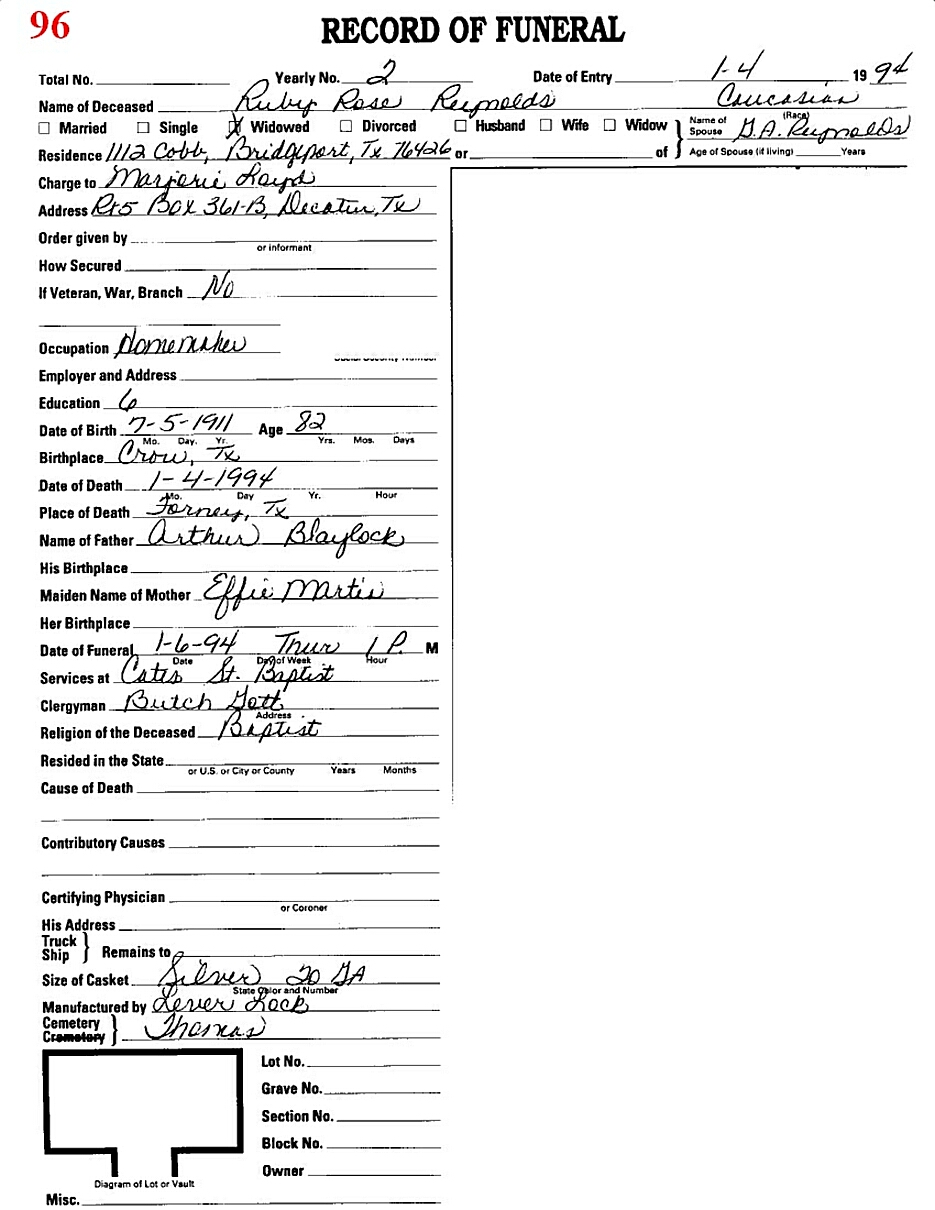 96
RECORD OF FUNERAL
Total No. Yearly No. 2 Date of Entry 1-4 19 94
Name of Deceased Ruby Rose Reynolds Caucasian
(Race)
☐ Married ☐ Single ☒ Widowed ☐ Divorced ☐ Husband ☐ Wife ☐ Widow } Name of Spouse G.A. Reynolds
Residence 1112 Cobb, Bridgeport, Tx 76426 or of Age of Spouse (if living) Years
Charge to Marjorie Loyd
Address Rt5 Box 361-B, Decatur, Tx
Order given by
or informant
How Secured
If Veteran, War, Branch No
Occupation Homemaker
Social Security Number
Employer and Address
Education 6
Date of Birth 7-5-1911 Age 82
Mo. Day. Yr. Yrs. Mos. Days
Birthplace Crow, Tx
Date of Death 1-4-1994
Mo. Day Yr. Hour
Place of Death Forney, Tx
Name of Father Arthur Blaylock
His Birthplace
Maiden Name of Mother Effie Martin
Her Birthplace
Date of Funeral 1-6-94 Thur 1 P. M
Date Day of Week Hour
Services at Cates St. Baptist
Clergyman Butch Gott
Address
Religion of the Deceased Baptist
Resided in the State
or U.S. or City or County Years Months
Cause of Death
Contributory Causes
Certifying Physician
or Coroner
His Address
Truck
Ship } Remains to
Size of Casket Silver 20 GA
State Color and Number
Manufactured by Lever Lock
Cemetery
Crematory } Thomas
Lot No.
Grave No.
Section No.
Block No.
Owner
Diagram of Lot or Vault
Misc.